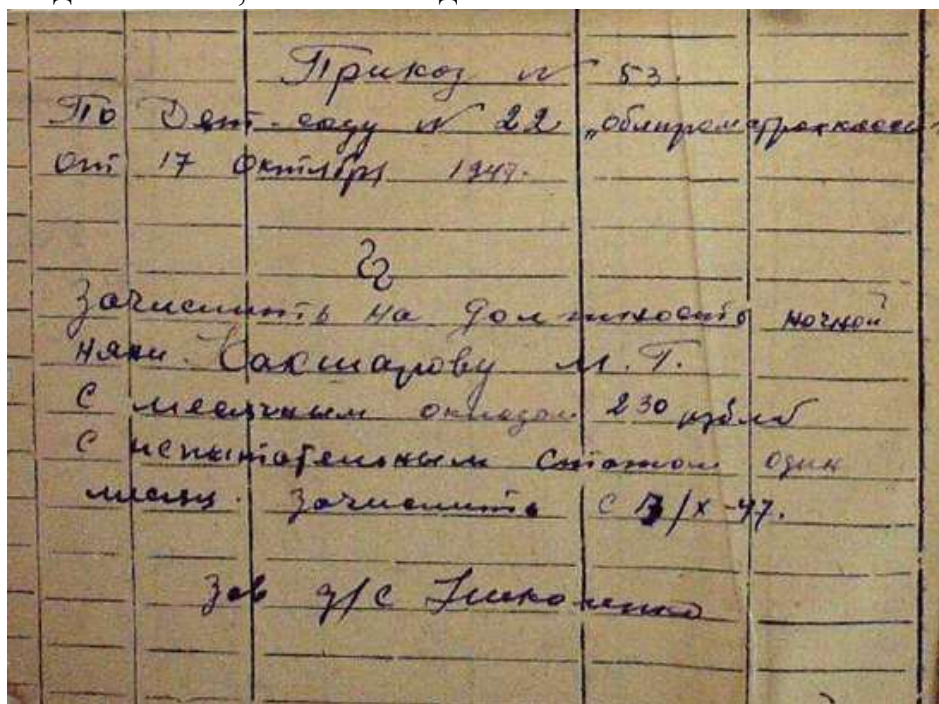 Приказ N 53.
По Дет-саду N 22 „облпромстрахкассы"
от 17 Октября 1947.
§
Зачислить на должность ночной
няни Вакшарову М. Г.
С месячным окладом 230 рублей
С испытательным стажом один
месяц. Зачислить с /X-47.
Зав д/с